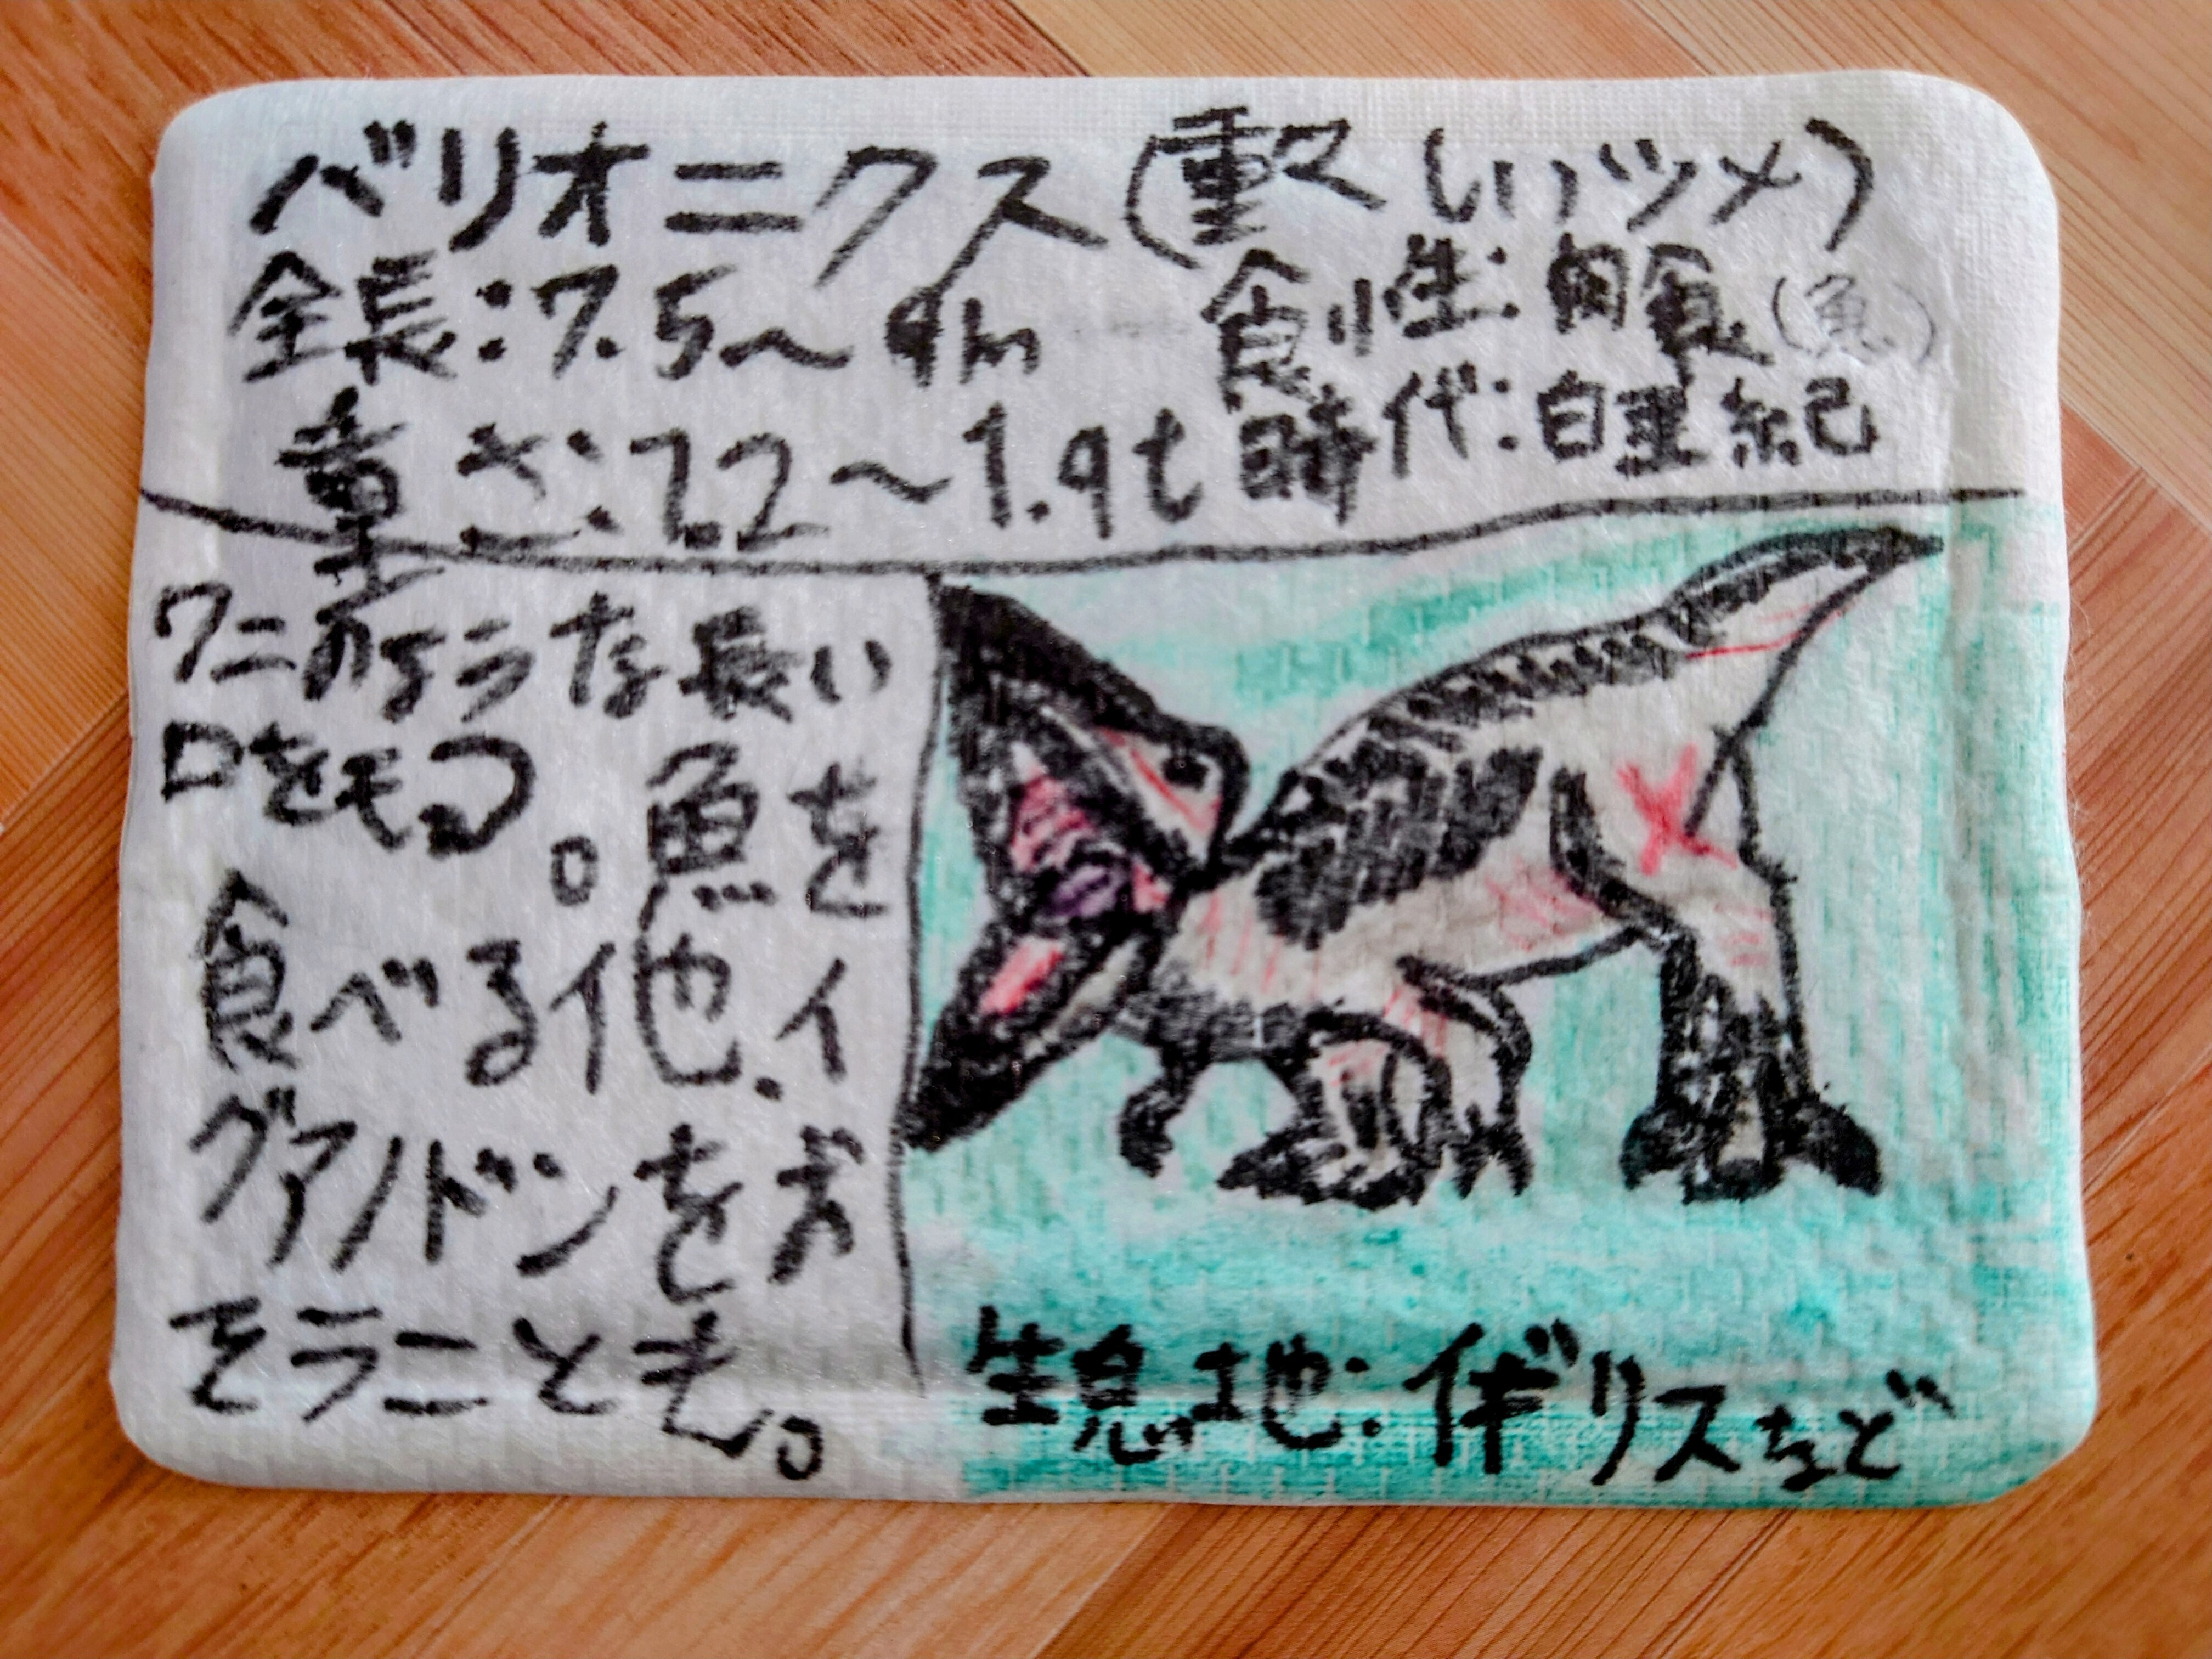 バリオニクス(重々しいツメ)
全長:7.5～9m
食性:肉食(魚)
重さ:1.2～1.9t
時代:白亜紀
ワニのような長い
口をもつ。魚を
食べる他、イ
グアノドンをお
そうことも。
生息地:イギリスなど